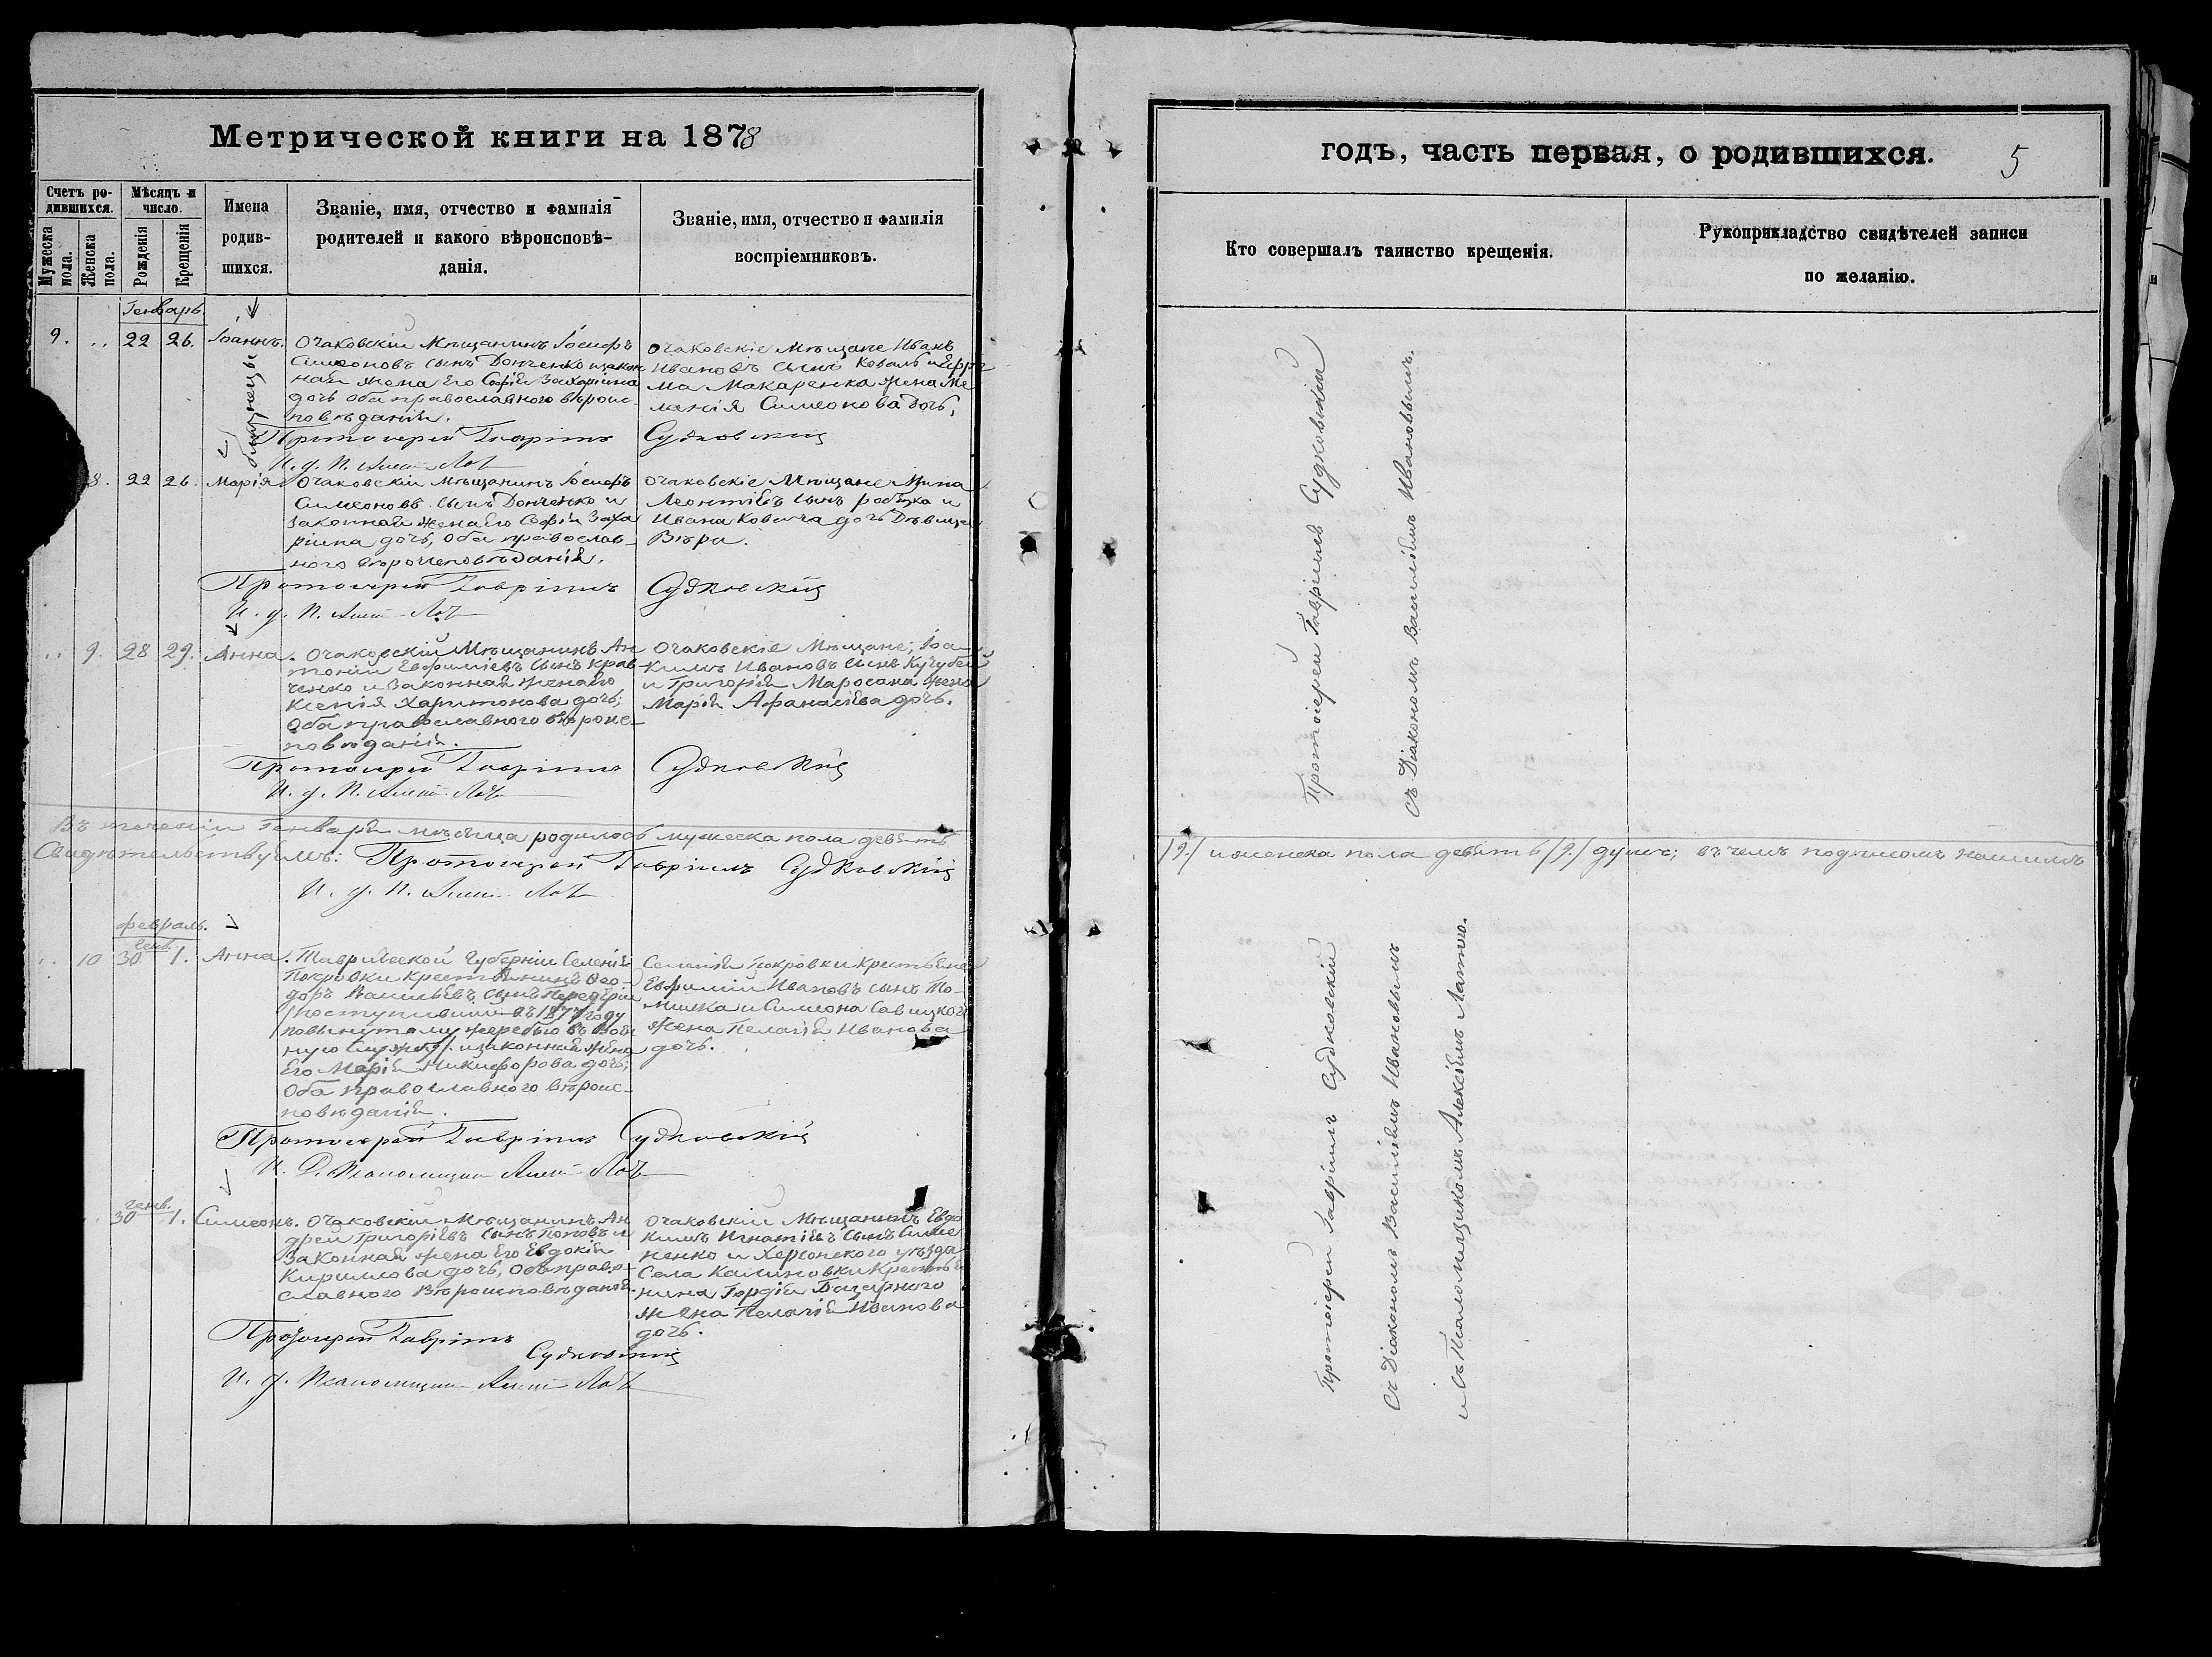 Метрической книги на 1878
Счетъ ро-
дившихся.
Мужеска
пола.
Женска
пола.
Мѣсяцъ и
число.
Рожденія
Крещенія
Имена
родив-
шихся.
Званіе, имя, отчество и фамилія
родителей и какого вѣроисповѣ-
данія.
Званіе, имя, отчество и фамилія
воспріемниковъ.
Генварь
9. .. 22 26. Іоаннъ.
близнецы
Очаковскій Мѣщанинъ Іосифъ
Симеоновъ сынъ Донченко и закон
ная жена его Софія Захаріина
дочь оба православного вѣроис-
повѣданія.
Очаковскіе Мѣщане Иванъ
Ивановъ сынъ Коваль и Ефре
ма Макаренка жена Ме
ланія Симеонова дочь,
Протоіерей Гавріилъ Судковскій
И. д. П.
8. 22 26. Марія
Очаковскій Мѣщанинъ Іосифъ
Симеоновъ сынъ Донченко и
законная жена его Софія Заха
ріина дочь, оба православ-
ного вѣроисповѣданія.
Очаковскіе Мѣщане
Леонтіевъ сынъ и
Ивана дочь Дѣвица
Вѣра.
Протоіерей Гавріилъ Судковскій
И. д. П.
.. 9. 28 29. Анна.
Очаковскій Мѣщанинъ Ан
тоній Евфиміевъ сынъ Крав-
ченко и законная жена его
Ксенія Харитонова дочь;
оба православного вѣроис-
повѣданія.
Очаковскіе Мѣщане; Іоа-
кимъ Ивановъ сынъ Кучубей
и Григорія жена
Марія Афанасіева дочь.
Протоіерей Гавріилъ Судковскій
И. д. П.
Въ теченіи Генваря мѣсяца родилось мужеска пола девять
Свидѣтельствуемъ: Протоіерей Гавріилъ Судковскій
И. д. П.
февраль.
.. 10 генв. 30 1. Анна.
Таврической Губерніи Селенія
Покровки Крестьянинъ Ѳео-
доръ Васильевъ сынъ
/поступившій въ 1877 году
по вынутому жеребью въ Воен
ную Службу/ и законная жена
его Марія Никифорова дочь;
оба православного вѣроис-
повѣданія.
Селенія Покровки Крестьяне
Евфимій Ивановъ сынъ
и Симеона Савицкого
жена Пелагія Иванова
дочь.
Протоіерей Гавріилъ Судковскій
И. Д. Псаломщика
генв. 30 1. Симеонъ.
Очаковскій Мѣщанинъ Ан
дрей Григоріевъ сынъ Поповъ и
законная жена его Евдокія
Кириллова дочь, оба право-
славного Вѣроисповѣданія.
Очаковскій Мѣщанинъ Евдо
кимъ Игнатіевъ сынъ Симе
ненко и Херсонского уѣзда
Села Калиновки Крестья
нина Гордія
жена Пелагія Иванова
дочь.
Протоіерей Гавріилъ
Судковскій
И. д. Псаломщика
годъ, часть первая, о родившихся.
5
Кто совершалъ таинство крещенія.
Рукоприкладство свидѣтелей записи
по желанію.
Протоіерей Гавріилъ Судковскій
съ Діакономъ Василіемъ Ивановымъ.
/9./ и женска пола девять /9./ душъ; въ чемъ подписомъ нашимъ
Протоіерей Гавріилъ Судковскій
съ Діакономъ Василіемъ Ивановымъ
и съ Псаломщикомъ Алексѣемъ